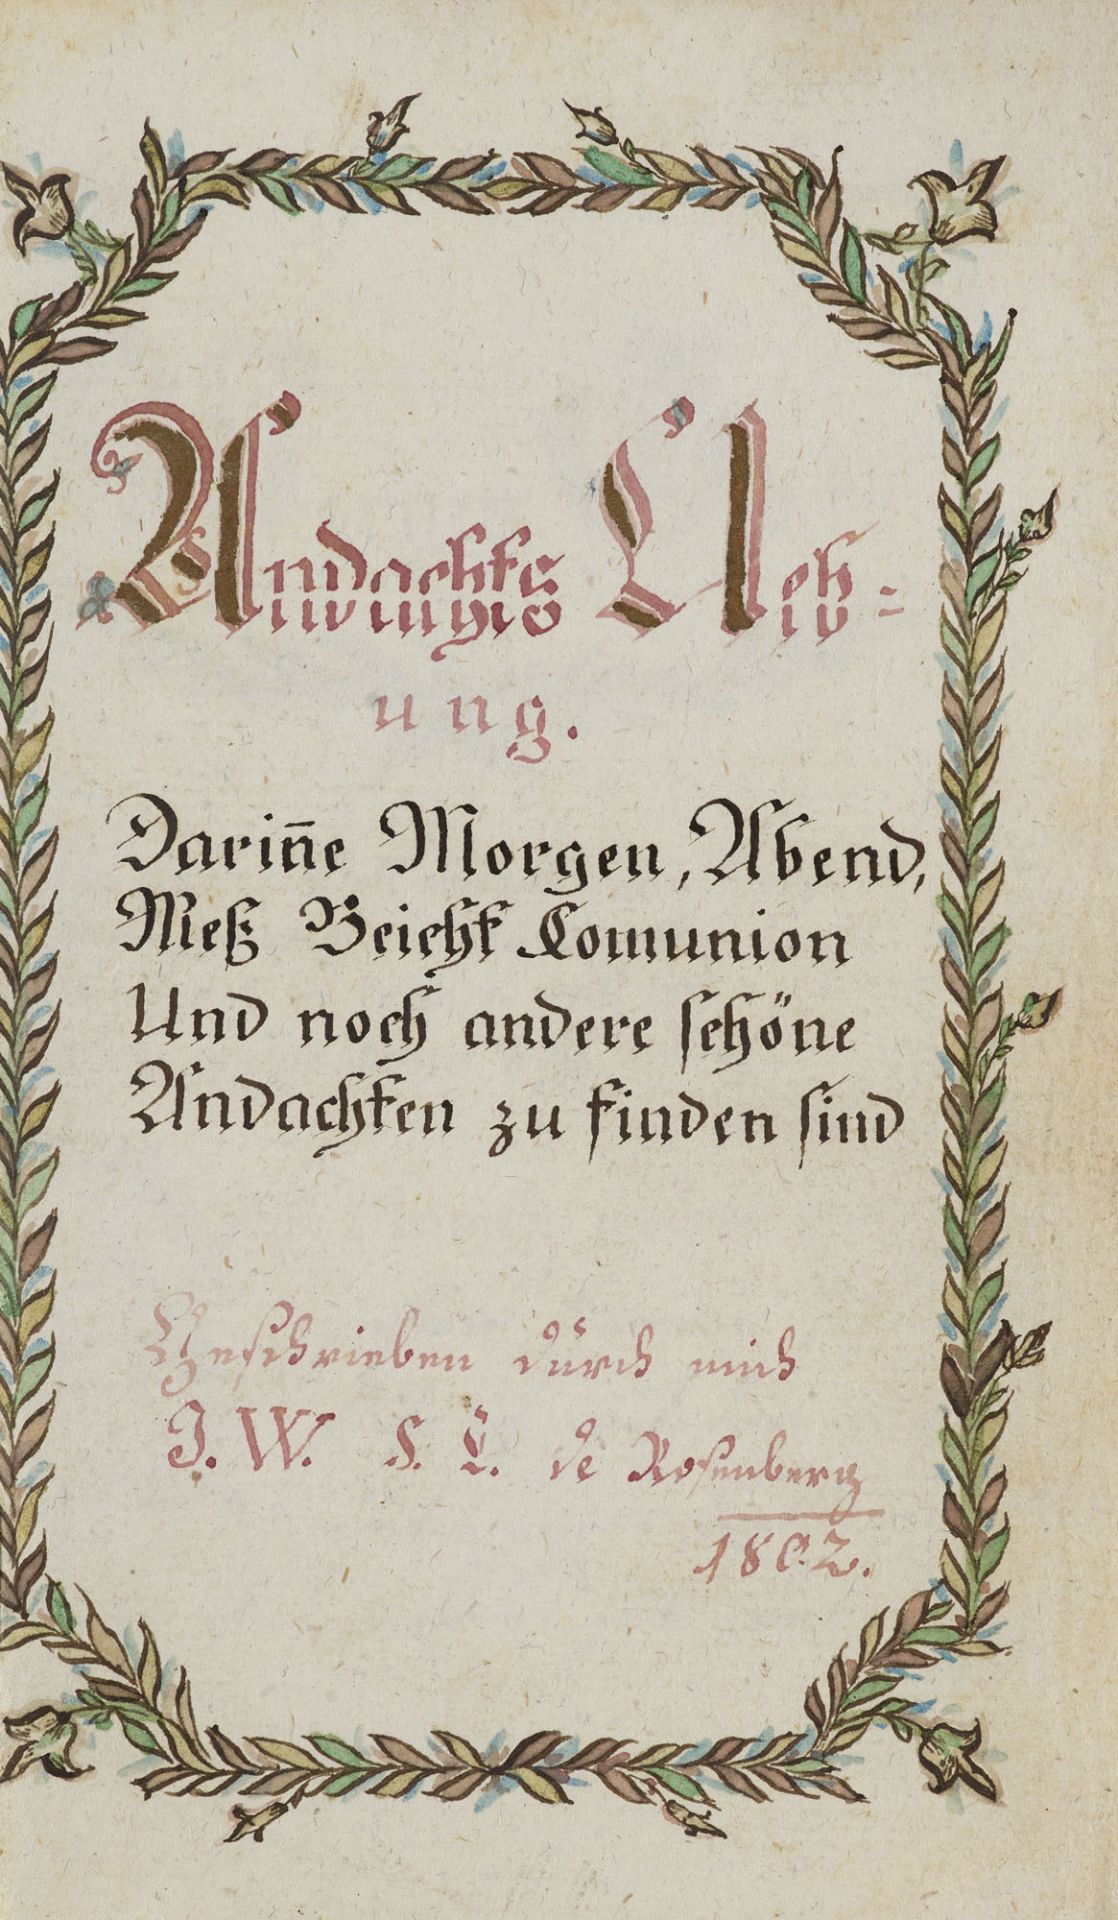 Andachts Ueb=
ung.
Dariñe Morgen, Abend,
Meß Beicht Comunion
Und noch andere schöne
Andachten zu finden sind
Geschrieben durch mich
J. W. S. C. de Rosenberg
1802.